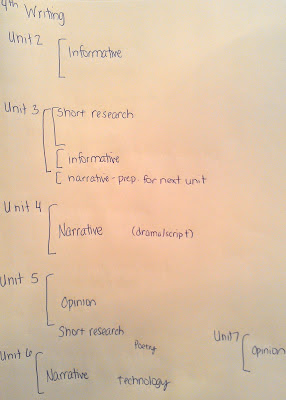 4th Writing
Unit 2
Informative
Unit 3
Short research
informative
narrative - prep for next unit
Unit 4
Narrative (drama/script)
Unit 5
Opinion
Short research
Poetry
Unit 6
Narrative technology
Unit 7
Opinion